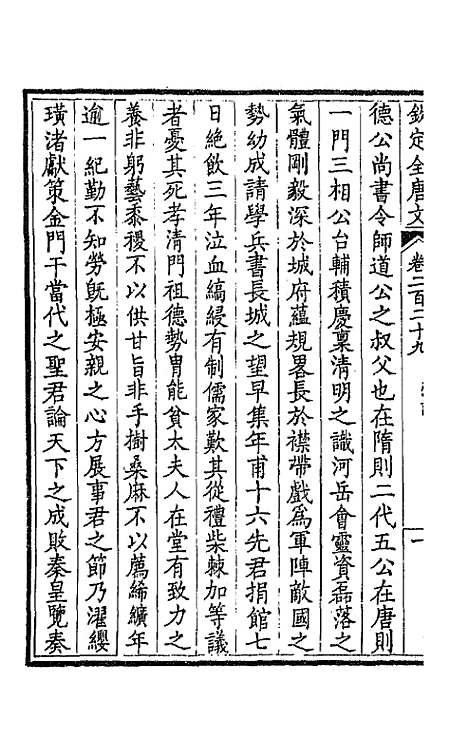 欽定全唐文 卷二百二十九 一
德公尚書令師道公之叔父也在隋則二代五公在唐則
一門三相公台輔積慶稟清明之識河岳會靈資磊落之
氣體剛毅深於城府蘊規畧長於襟帶戲為軍陣敵國之
勢幼成請學兵書長城之望早集年甫十六先君捐館七
日絶飲三年泣血縞綅有制儒家歎其從禮柴棘加等議
者憂其死孝清門祖德勢胄能貧太夫人在堂有致力之
養非躬藝黍稷不以供甘旨非手樹桑麻不以薦絺纊年
逾一紀勤不知勞旣極安親之心方展事君之節乃濯纓
璜渚獻策金門干當代之聖君論天下之成敗秦皇覽奏